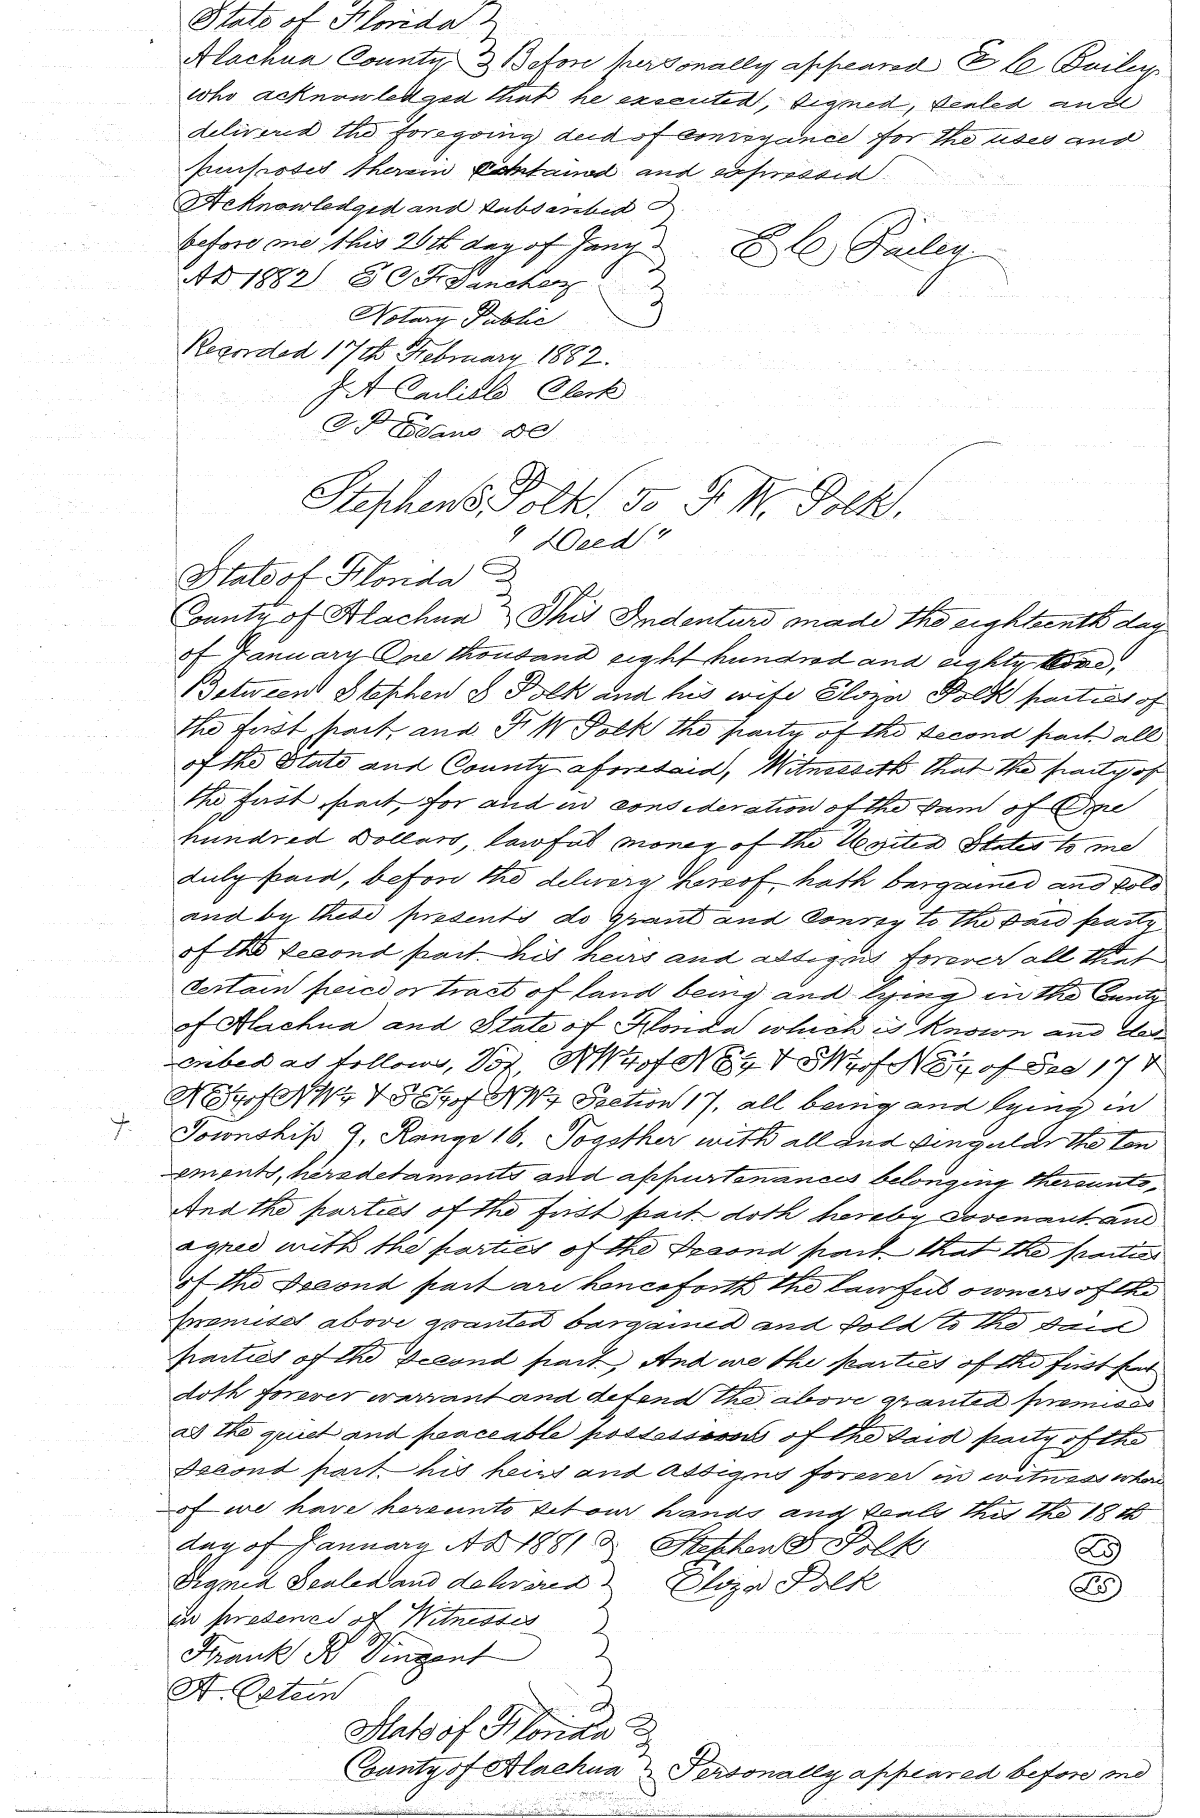 State of Florida
Alachua County } Before personally appeared E C Bailey
who acknowledged that he executed, signed, sealed and
delivered the foregoing deed of conveyance for the uses and
purposes therein contained and expressed.
Acknowledged and subscribed
before me this 26th day of Jany
AD 1882 E C F Sanchez
E C Bailey
Notary Public
Recorded 17th February 1882.
J A Carlisle Clerk
Evans DC
Stephen S, Polk, To F. W. Polk.
"Deed"
State of Florida
County of Alachua } This Indenture made the eighteenth day
of January One thousand eight hundred and eighty
Between Stephen S Polk and his wife Eloza Polk parties of
the first part, and F W Polk the party of the second part all
of the State and County aforesaid, Witnesseth that the party of
the first part, for and in consideration of the sum of One
hundred Dollars, lawful money of the United States to me
duly paid, before the delivery hereof, hath bargained and sold
and by these presents do grant and convey to the said party
of the second part his heirs and assigns forever all that
certain peice or tract of land being and lying in the County
of Alachua and State of Florida which is known and des
cribed as follows, Viz, NW¼ of NE¼ & SW¼ of NE¼ of Sec 17 &
NE¼ of NW¼ & SE¼ of NW¼ Section 17, all being and lying in
Township 9, Range 16, Together with all and singular the ten
ements, heredetaments and appurtenances belonging thereunto,
And the parties of the first part doth hereby covenant and
agree with the parties of the Second part that the parties
of the Second part are henceforth the lawful owners of the
premises above granted bargained and sold to the said
parties of the second part, And we the parties of the first part
doth forever warrant and defend the above granted premises
as the quiet and peaceable possessions of the said party of the
Second part his heirs and assigns forever in witness where
of we have hereunto set our hands and seals this the 18th
day of January AD 1881 Stephen S Polk LS
Signed Sealed and delivered Eloza Polk LS
in presence of Witnesses
Frank R Vinzent
A. Estein
State of Florida
County of Alachua } Personally appeared before me